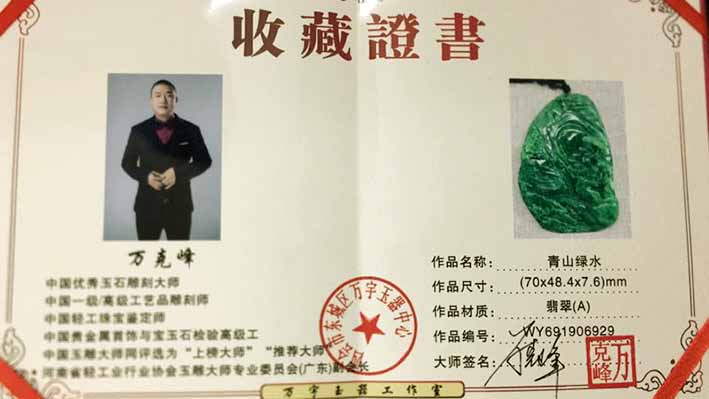 收藏證書
万克峰
中国优秀玉石雕刻大师
中国一级/高级工艺品雕刻师
中国轻工珠宝鉴定师
中国贵金属首饰与宝玉石检验高级工
中国玉雕大师网评选为“上榜大师”“推荐大师”
河南省轻工业行业协会玉雕大师专业委员会(广东)副会长
四会市东城区万宇玉器中心
作品名称: 青山绿水
作品尺寸: (70x48.4x7.6)mm
作品材质: 翡翠(A)
作品编号: WY691906929
大师签名:
万克峰
万宇玉器工作室